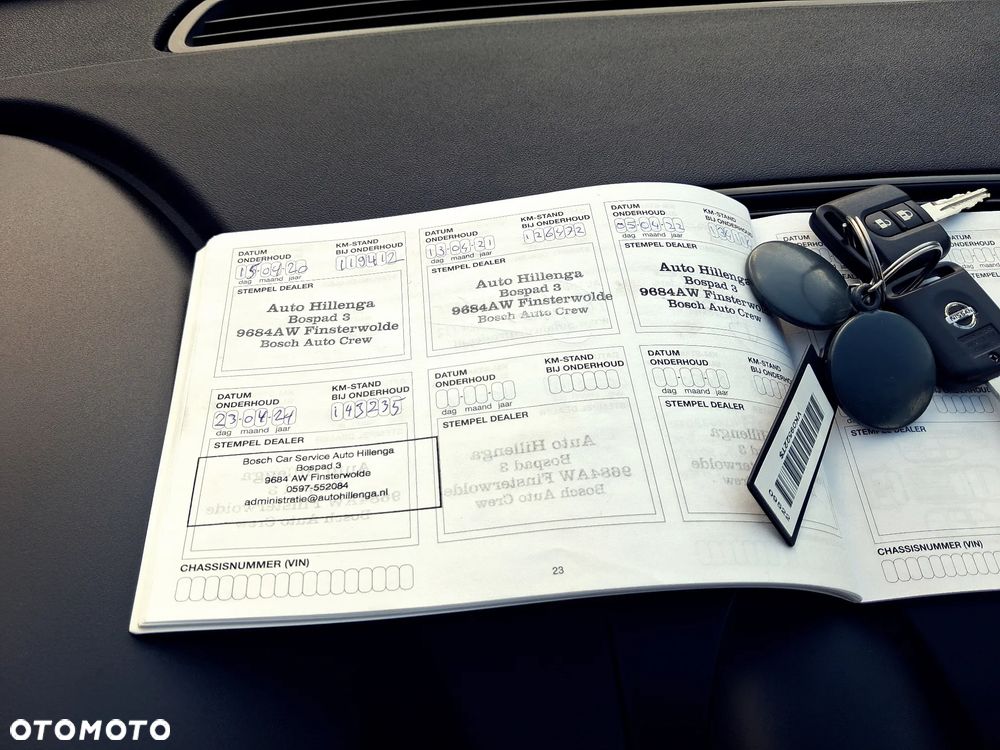 DATUM ONDERHOUD
KM-STAND BIJ ONDERHOUD
15-04-20
119412
dag maand jaar
STEMPEL DEALER
Auto Hillenga
Bospad 3
9684AW Finsterwolde
Bosch Auto Crew
DATUM ONDERHOUD
KM-STAND BIJ ONDERHOUD
13-04-21
126472
dag maand jaar
STEMPEL DEALER
Auto Hillenga
Bospad 3
9684AW Finsterwolde
Bosch Auto Crew
DATUM ONDERHOUD
KM-STAND BIJ ONDERHOUD
05-04-22
dag maand jaar
STEMPEL DEALER
Auto Hillenga
Bospad 3
9684AW Finsterwolde
Bosch Auto Crew
DATUM ONDERHOUD
KM-STAND BIJ ONDERHOUD
23-04-24
143235
dag maand jaar
STEMPEL DEALER
Bosch Car Service Auto Hillenga
Bospad 3
9684 AW Finsterwolde
0597-552084
administratie@autohillenga.nl
DATUM ONDERHOUD
KM-STAND BIJ ONDERHOUD
dag maand jaar
STEMPEL DEALER
DATUM ONDERHOUD
KM-STAND
dag maand jaar
STEMPEL DEALER
CHASSISNUMMER (VIN)
23
NISSAN
STEMPEL DEALER
CHASSISNUMMER (VIN)
OTOMOTO